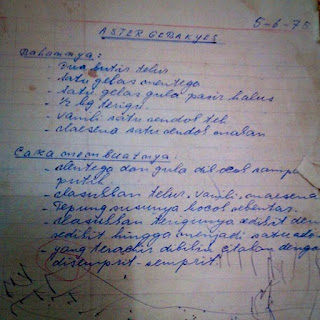 5-6-75
ASTER GEBAKYES
Bahannya:
- Dua butir telur
- satu gelas mentega
- satu gelas gula pasir halus
- 1/2 kg terigu
- vanili satu sendok teh
- maesena satu sendok makan
Cara membuatnya:
- mentega dan gula dikocok sampai
putih.
- masukkan telur, vanili, maesena
tepung susunya kocok sebentar
- masukkan terigunya sedikit dem
sedikit hingga menjadi satu
yang terachir dibikin cetakan dengan
disemprit-semprit